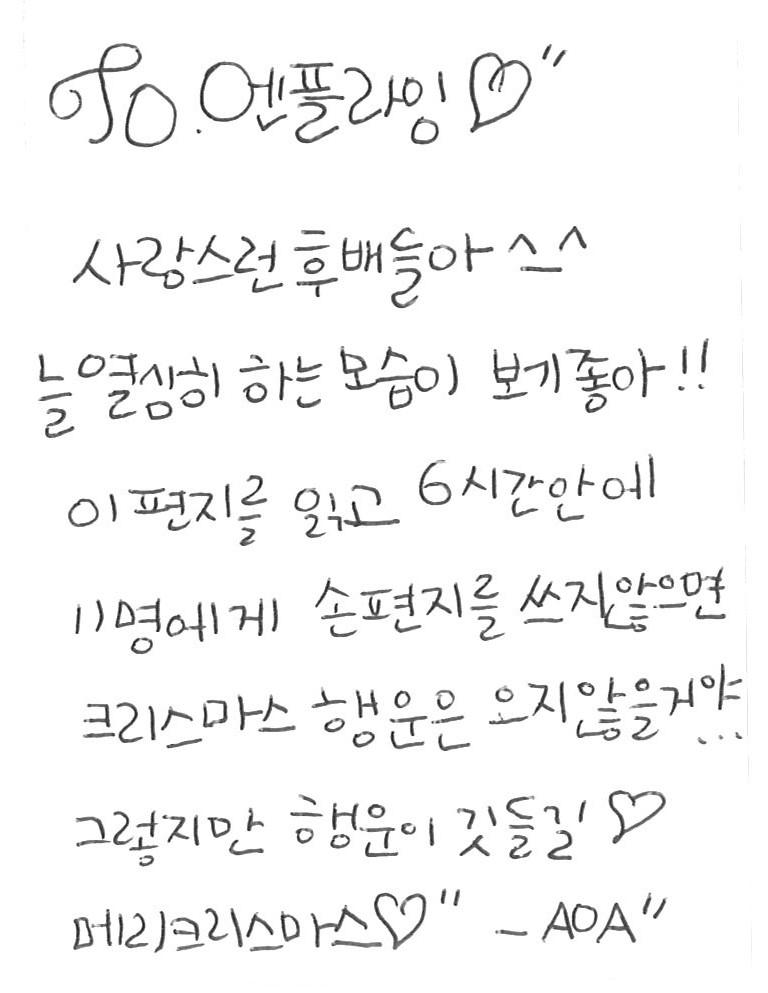 To. 엔플라잉♡"
사랑스런 후배들아 ^_^
늘 열심히 하는 모습이 보기좋아!!
이 편지를 읽고 6시간안에
11명에게 손편지를 쓰지않으면
크리스마스 행운은 오지않을거야...
그렇지만 행운이 깃들길♡
메리크리스마스♡" - AOA"